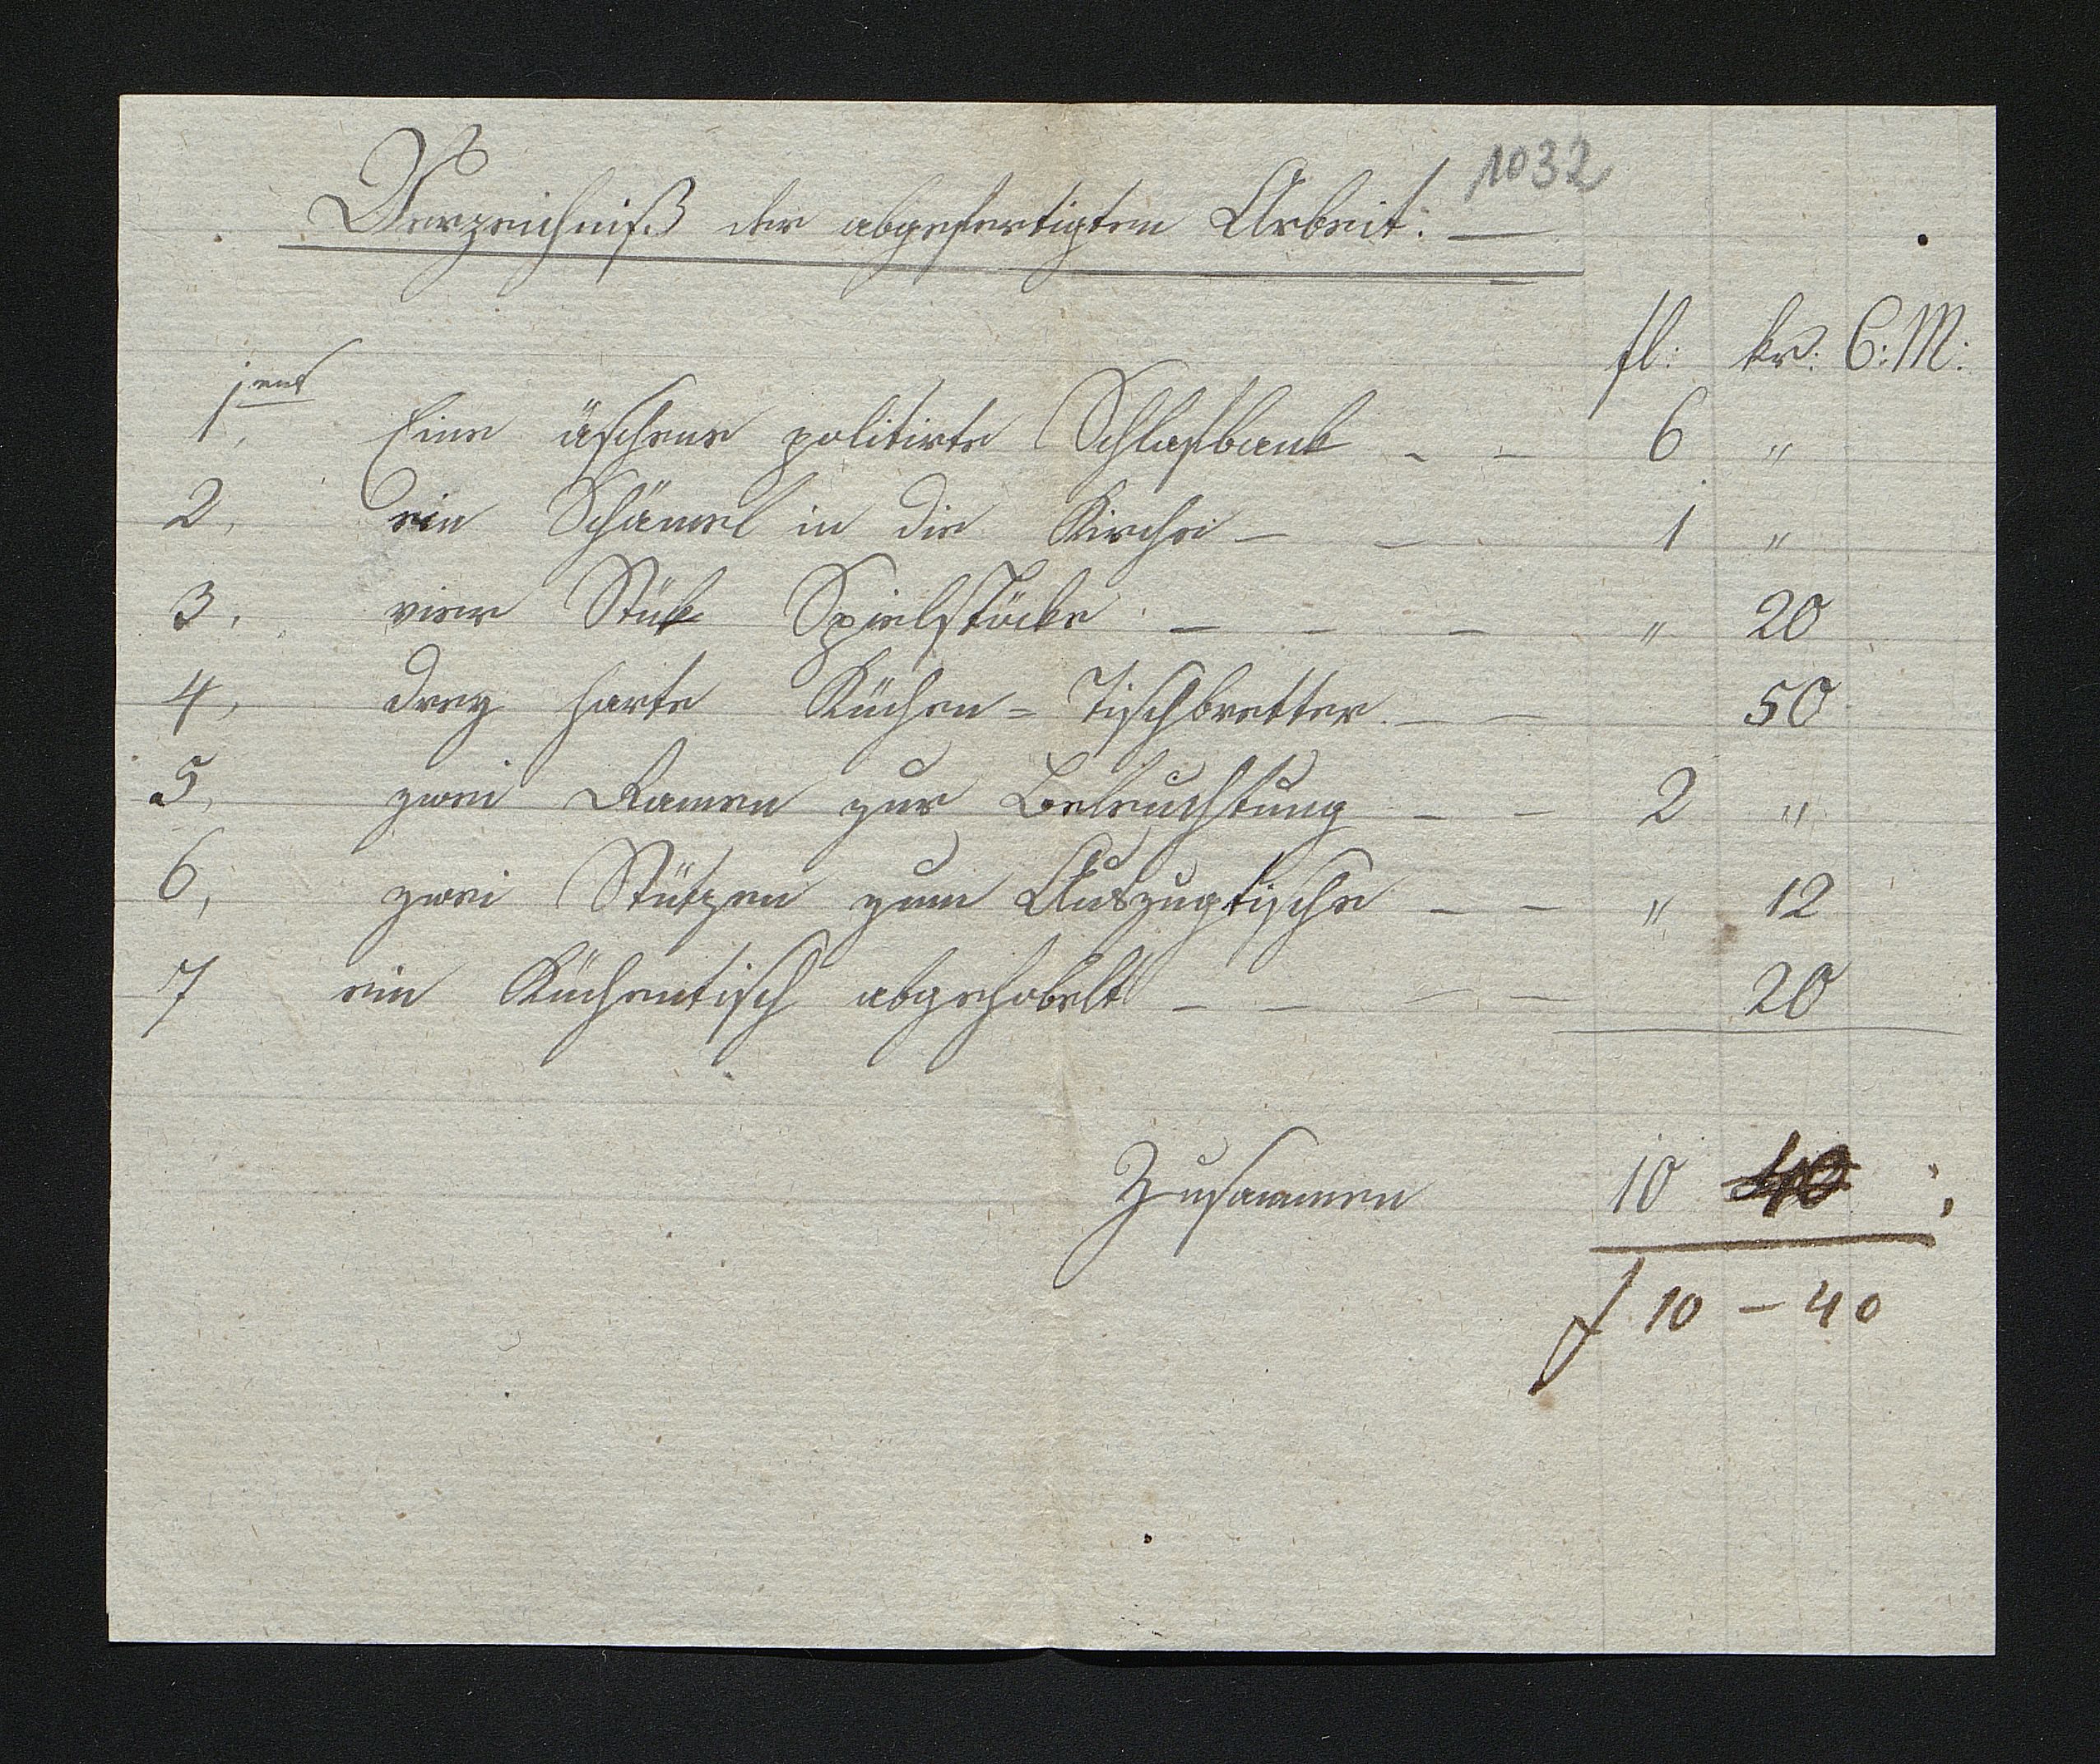 1032
Verzeichniß der abgefertigten Arbeit. —
fl: kr: C:M:
1, jens Eine äschene politirte Schlafbank - - 6 "
2, ein Schämel in die Kirche - - 1 "
3, vier Stük Spielstöcke - - - " 20
4, drey harte Küchen = Tischbretter - - 50
5, zwei Ramen zur Beleuchtung - - 2 "
6, zwei Stützen zum Auszugtische - - " 12
7 ein Küchentisch abgehobelt - - - - 20
Zusammen 10 40
f 10 - 40